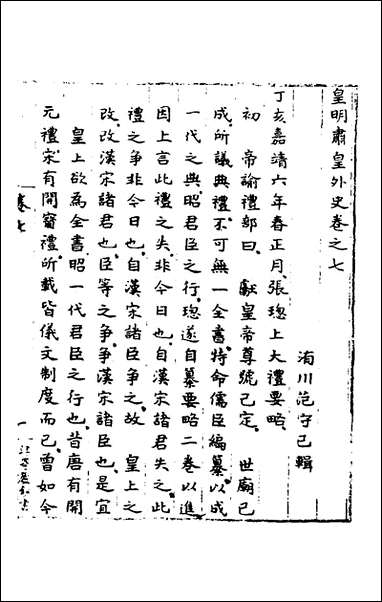 皇明肅皇外史卷之七
洧川范守己輯
丁亥嘉靖六年春正月張璁上大禮要略
初　帝諭禮部曰　獻皇帝尊號已定　世廟已
成所議典禮不可無一全書特命儒臣編纂以成
一代之典昭君臣之行璁遂自纂要略二卷以進
因上言此禮之失非今日也自漢宋諸君失之此
禮之爭非今日也自漢宋諸臣爭之故　皇上之
改改漢宋諸君也臣等之爭爭漢宋諸臣也是宜
皇上欲為全書昭一代君臣之行也昔唐有開
元禮宋有開寶禮所載皆儀文制度而已曾如今
卷七
一